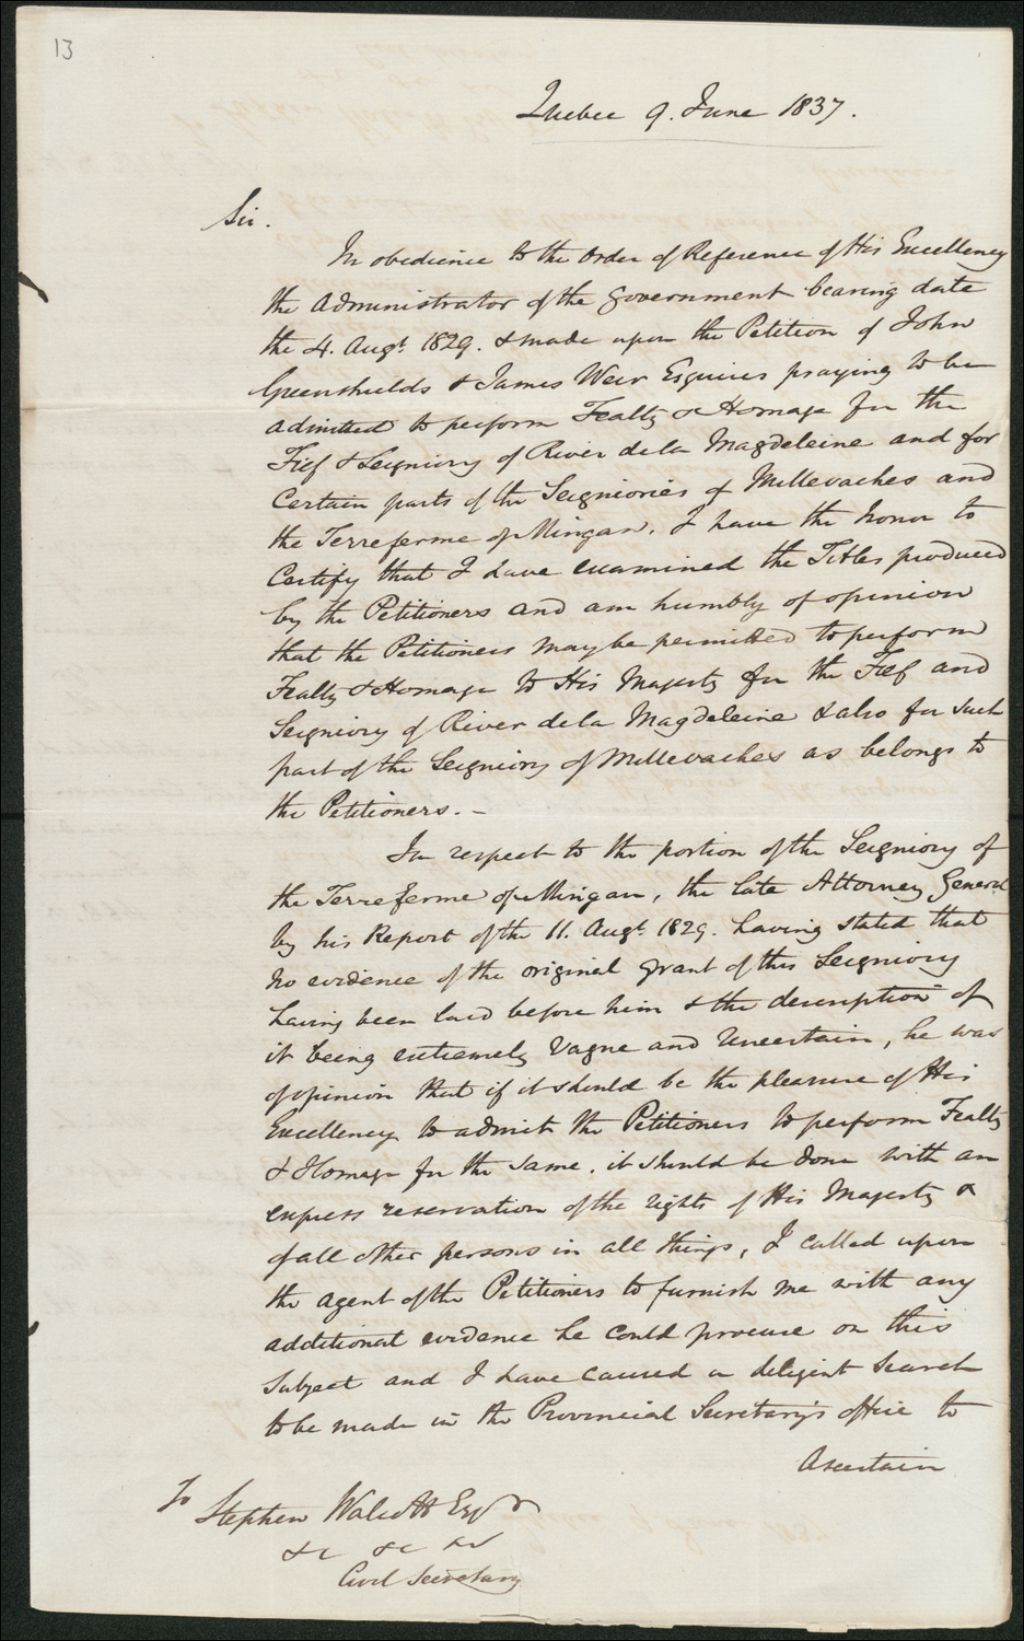 13
Quebec 9. June 1837.
Sir.
In obedience to the Order of Reference of His Excellency
the Administrator of the Government bearing date
the 4. Augt. 1829. & made upon the Petition of John
Greenshields & James Weir Esquires praying to be
admitted to perform Fealty & Homage for the
Fief & Seigniory of River de la Magdeleine and for
Certain parts of the Seigniories of Millevaches and
the Terreferme of Mingan. I have the honor to
Certify that I have examined the Titles produced
by the Petitioners and am humbly of opinion
that the Petitioners may be permitted to perform
Fealty & Homage to His Majesty for the Fief and
Seigniory of River de la Magdeleine & also for such
part of the Seigniory of Millevaches as belongs to
the Petitioners. -
In respect to the portion of the Seigniory of
the Terreferme of Mingan, the late Attorney General
by his Report of the 11. Augt. 1829. having stated that
no evidence of the original grant of this Seigniory
having been laid before him & the description of
it being extremely vague and Uncertain, he was
of opinion that if it should be the pleasure of His
Excellency to admit the Petitioners to perform Fealty
& Homage for the same. it should be done with an
express reservation of the rights of His Majesty &
of all other persons in all things, I called upon
the agent of the Petitioners to furnish me with any
additional evidence he could procure on this
Subject and I have caused a diligent Search
to be made in the Provincial Secretary's office to
Ascertain
To
Stephen Walcott Esqr
&c &c &c
Civil Secretary